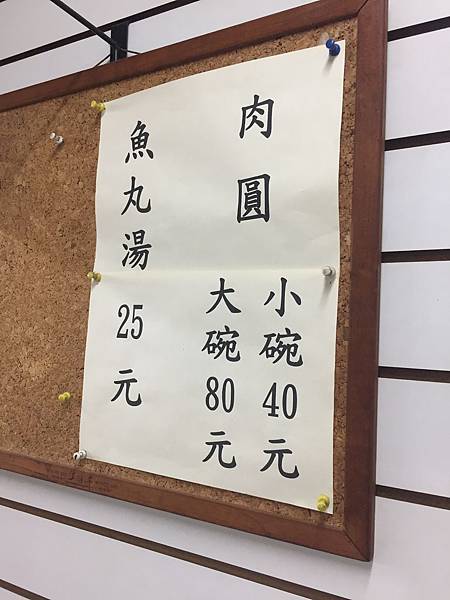 肉圓
小碗40元
大碗80元
魚丸湯 25元